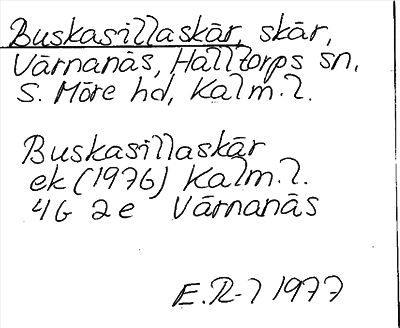 Buskasillaskär, skär,
Värnanäs, Halltorps sn,
S. Möre hd, Kalm. l.
Buskasillaskär
ek (1976) Kalm. l.
4G 2e Värnanäs
E.R-l 1977